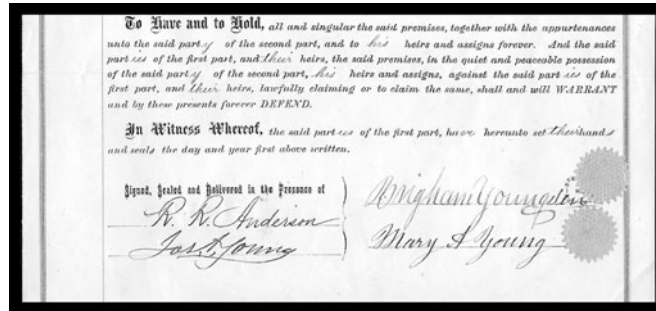 To Have and to Hold, all and singular the said premises, together with the appurtenances
unto the said party of the second part, and to his heirs and assigns forever. And the said
parties of the first part, and their heirs, the said premises, in the quiet and peaceable possession
of the said party of the second part, his heirs and assigns, against the said parties of the
first part, and their heirs, lawfully claiming or to claim the same, shall and will WARRANT
and by these presents forever DEFEND.
In Witness Whereof, the said parties of the first part, have hereunto set their hands
and seals the day and year first above written.
Signed, Sealed and Delivered in the Presence of
R. R. Anderson
Jos. A. Young
Brigham Young
Mary A Young